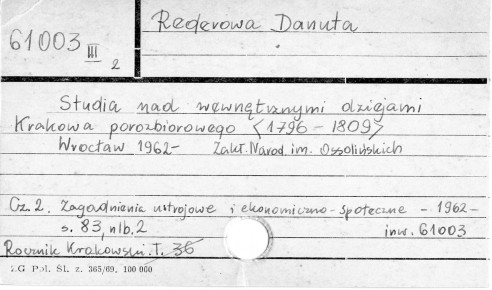 Rederowa Danuta
61003 III
2
Studia nad wewnętrznymi dziejami
Krakowa porozbiorowego <1796 - 1809>
Wrocław 1962- Zakł. Narod. im. Ossolińskich
Cz. 2. Zagadnienia ustrojowe i ekonomiczno-społeczne - 1962 -
s. 83, nlb. 2 inw. 61003
Rocznik Krakowski. T. 36
ZG Pol. Śl. z. 365/69. 100 000